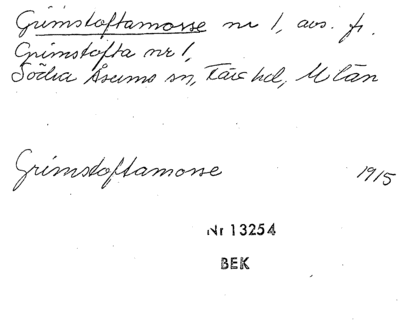 Grimstoftamosse nr 1, avs. fr.
Grimstofta nr 1,
Södra Åsums sn, Färs hd, M län
Grimstoftamosse 1915
Nr 13254
BEK